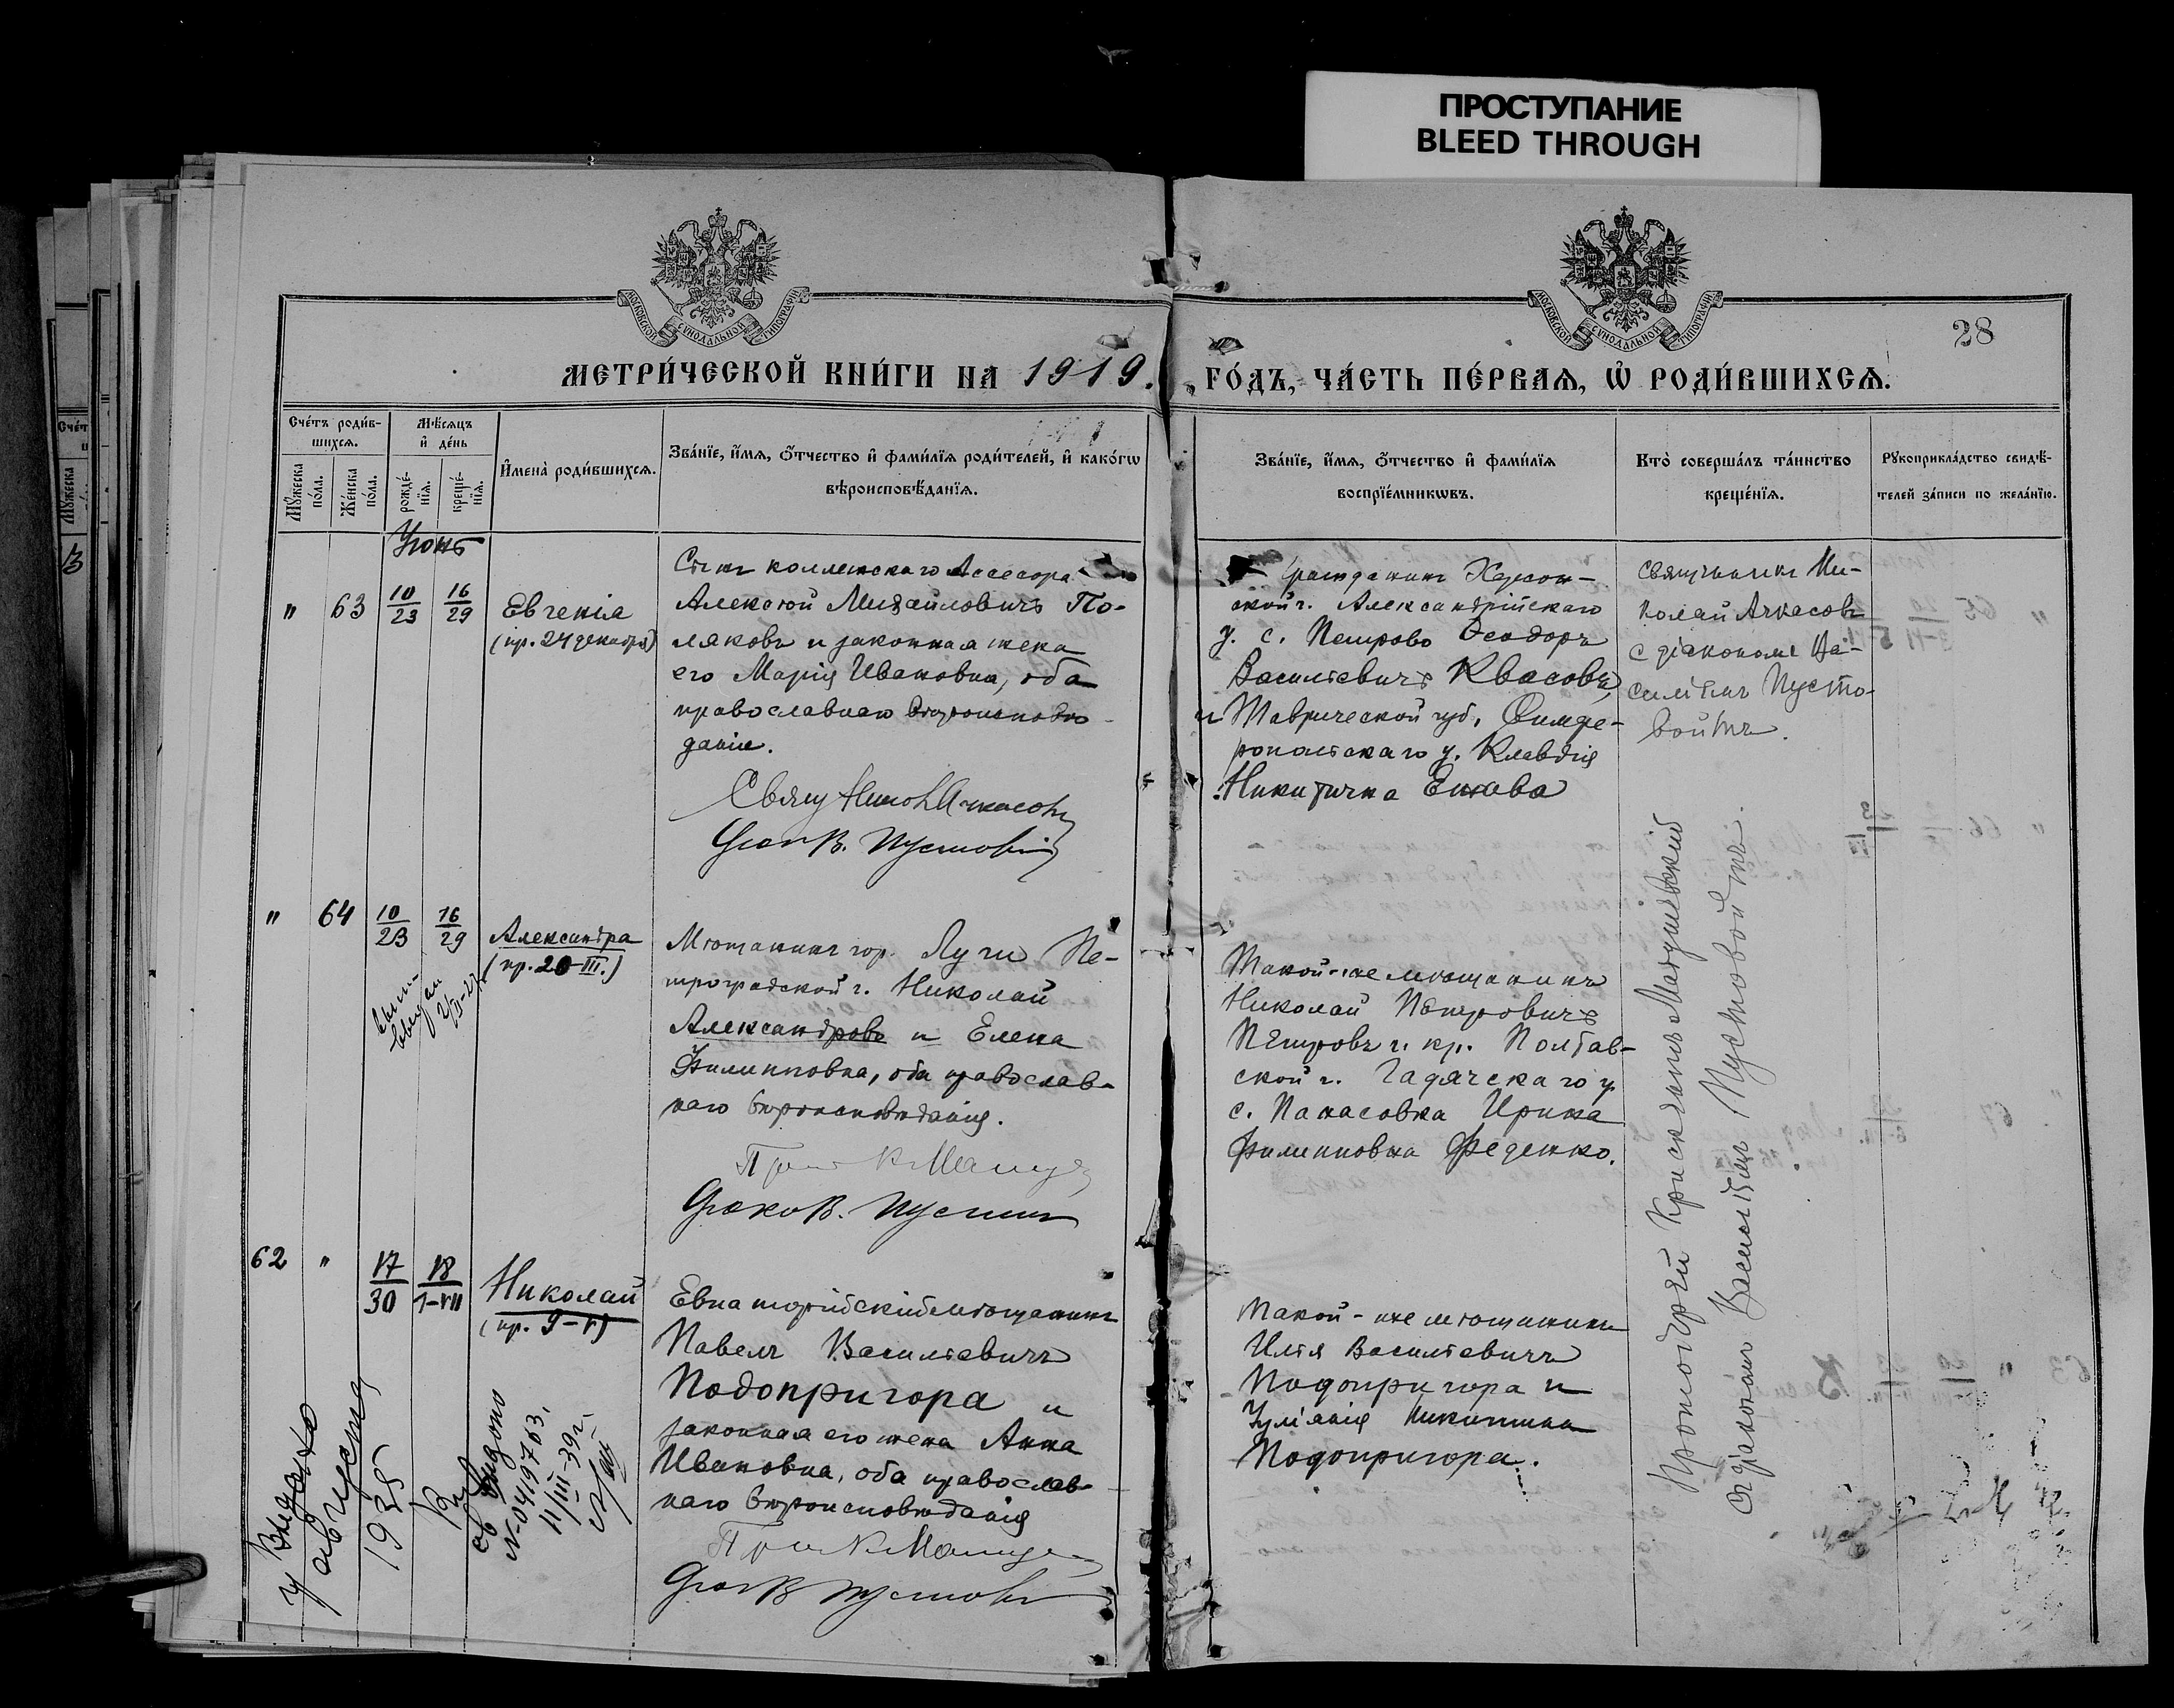 ПРОСТУПАНИЕ
BLEED THROUGH
МОСКОВСКОЙ СУНОДАЛЬНОЙ ТИПОГРАФІИ
МОСКОВСКОЙ СУНОДАЛЬНОЙ ТИПОГРАФІИ
28
МЕТРИ́ЧЕСКОЙ КНИ́ГИ НА 1919.
ГО́ДЪ, ЧА́СТЬ ПЕ́РВАѦ, Ѡ҆ РОДИ́ВШИХСѦ.
Сче́тъ роди́в-
шихсѧ.
Мꙋ́жеска
по́ла.
Же́нска
по́ла.
Мѣ́сѧцъ
и҆ де́нь
рожде́-
нїѧ.
креще́-
нїѧ.
И҆мена̀ роди́вшихсѧ.
Зва́нїе, и҆́мѧ, ѻ҆́тчество и҆ фами́лїѧ роди́телей, и҆ како́гѡ
вѣроисповѣ́данїѧ.
Зва́нїе, и҆́мѧ, ѻ҆́тчество и҆ фами́лїѧ
воспрїе́мникѡвъ.
Кто̀ соверша́лъ та́инство
креще́нїѧ.
Рꙋкоприкла́дство свидѣ́-
телей за́писи по жела́нїю.
Іюнь
" 63 10/23 16/29
Евгенія
(пр. 24 декабря)
Сынъ коллежскаго Ассесора
Алексѣй Михайловичъ По-
ляковъ и законная жена
его Марія Ивановна, оба
православнаго вѣроисповѣ-
данія.
Свящ Никол Ачкасовъ
Діак В. Пустовой
гражданинъ Херсон-
ской г. Александрійскаго
у. с. Петрово Ѳеодоръ
Васильевичъ Квасовъ,
и Таврической губ. Симфе-
ропольскаго у. Клавдія
Никитична
Священникъ Ни-
колай Ачкасовъ
с діакономъ Ва-
силіемъ Пусто-
войтъ.
" 64 10/23 16/29
Александра
(пр. 20-III.)
Мѣщанинъ гор. Луги Пе-
троградской г. Николай
Александровъ и Елена
Филипповна, оба православ-
наго вѣроисповѣданія.
Діакъ В. Пустов
Такой-же мѣщанинъ
Николай Петровичъ
Петровъ и кр. Полтав-
ской г. Гадячскаго у
с. Панасовка Ирина
Филипповна Феденко.
Протоіерей Крискентъ Матушевскій
с діакономъ Василіемъ Пустовойтъ.
62 " 17/30 18/1-VII
Николай
(пр. 9-V)
Евпаторійскій мѣщанинъ
Павелъ Васильевичъ
Подопригора и
законная его жена Анна
Ивановна, оба православ-
наго вѣроисповѣданія
Діак В Пустов
Такой-же мѣщанинъ
Илья Васильевичъ
Подопригора и
Іуліанія Никитина
Подопригора.
Выдано
августа
1935
Выдано
N-0419763
11/III-39 г.